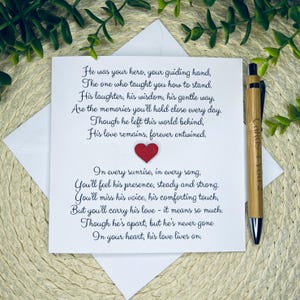 He was your hero, your guiding hand,
The one who taught you how to stand.
His laughter, his wisdom, his gentle way,
Are the memories you'll hold close every day.
Though he left this world behind,
His love remains, forever entwined.
In every sunrise, in every song,
You'll feel his presence, steady and strong.
You'll miss his voice, his comforting touch,
But you'll carry his love - it means so much.
Though he's apart, but he's never gone
In your heart, his love lives on.